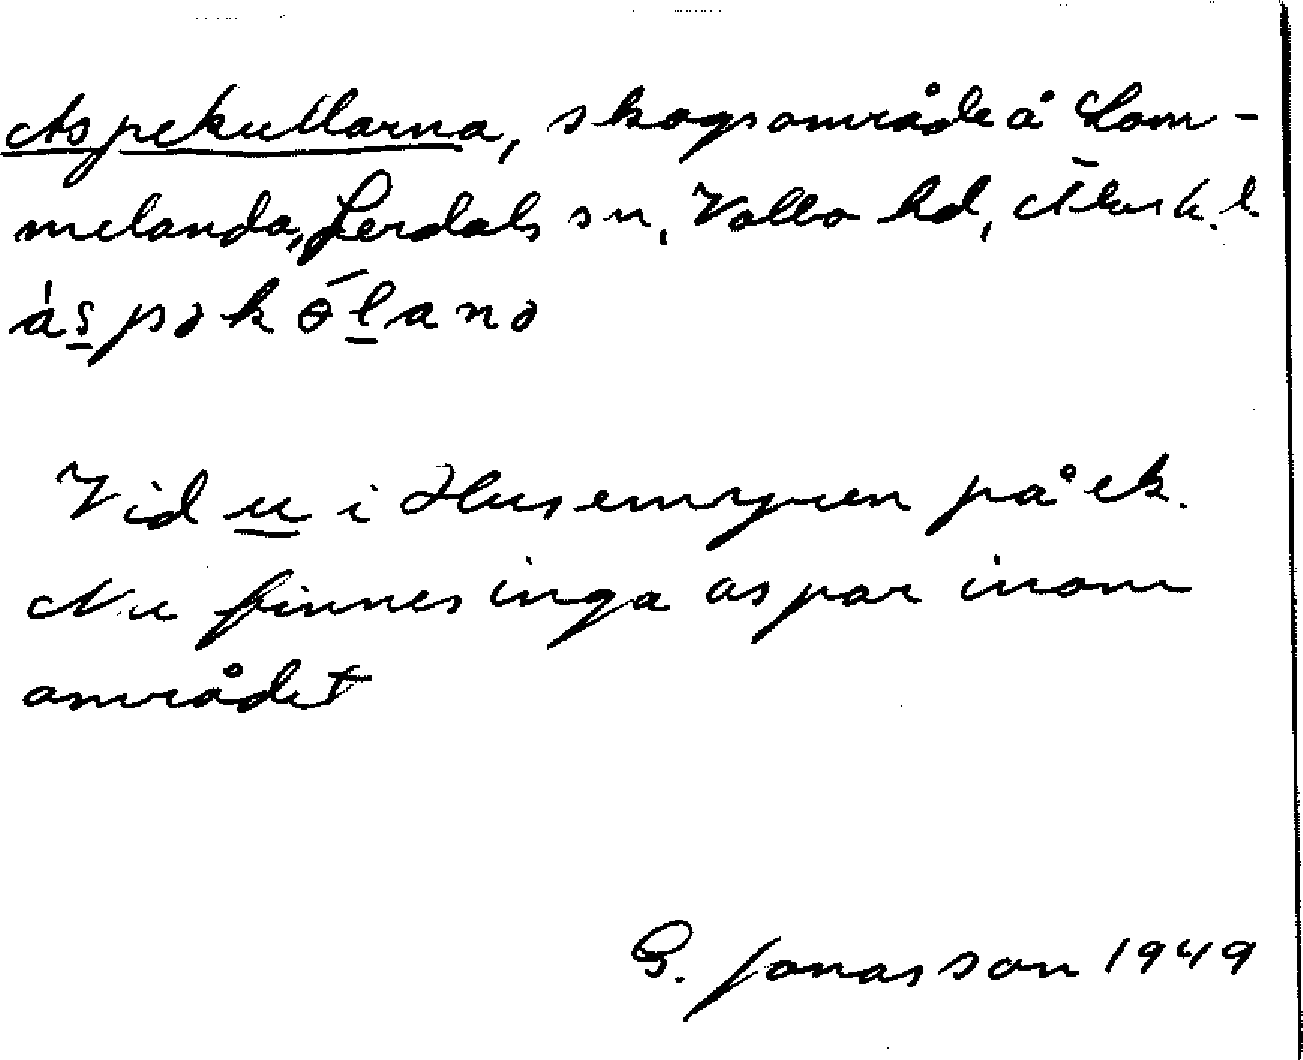 Aspekullarna, skogsområde å Lom-
melanda, Lerdals sn, Valbo hd, Älvsb. l.
àspəkɵ́lanə
Vid u i Husemyren på ek.
Nu finnes inga aspar inom
området
G. Jonasson 1949